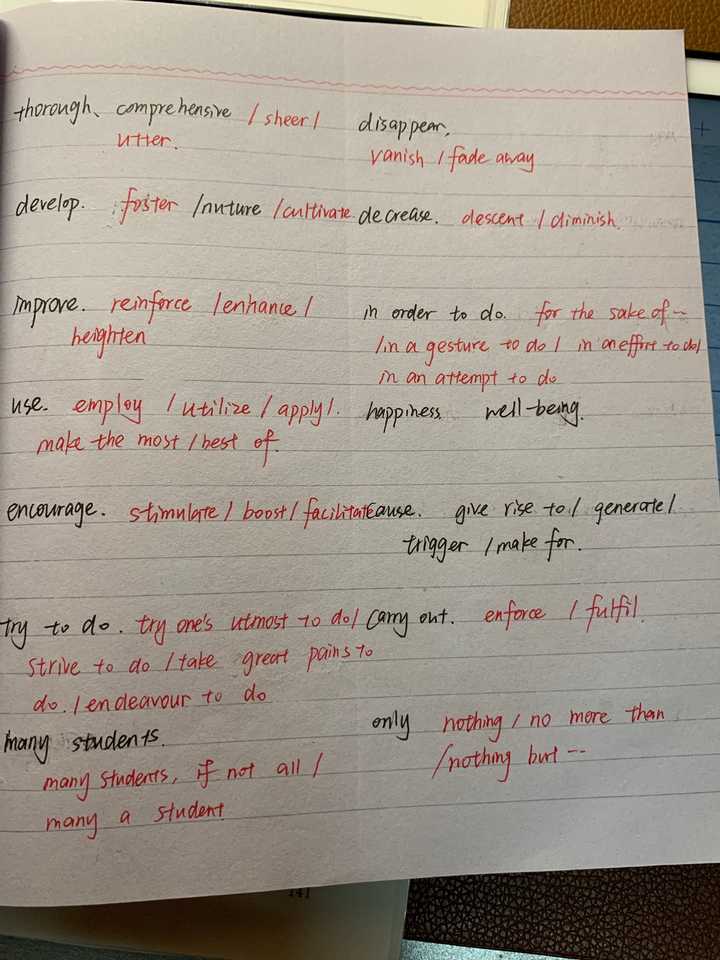 thorough、comprehensive / sheer /
utter.
disappear.
vanish / fade away
develop. foster / nuture / cultivate
decrease. descent / diminish.
improve. reinforce / enhance /
heighten
in order to do. for the sake of ~
/ in a gesture to do / in an effort to do /
in an attempt to do
use. employ / utilize / apply /.
make the most / best of.
happiness well-being.
encourage. stimulate / boost / facilitate
cause. give rise to / generate /
trigger / make for.
try to do. try one's utmost to do /
strive to do / take great pains to
do. / endeavour to do
carry out. enforce / fulfil.
many students.
many students, if not all /
many a student
only nothing / no more than
/ nothing but --
141